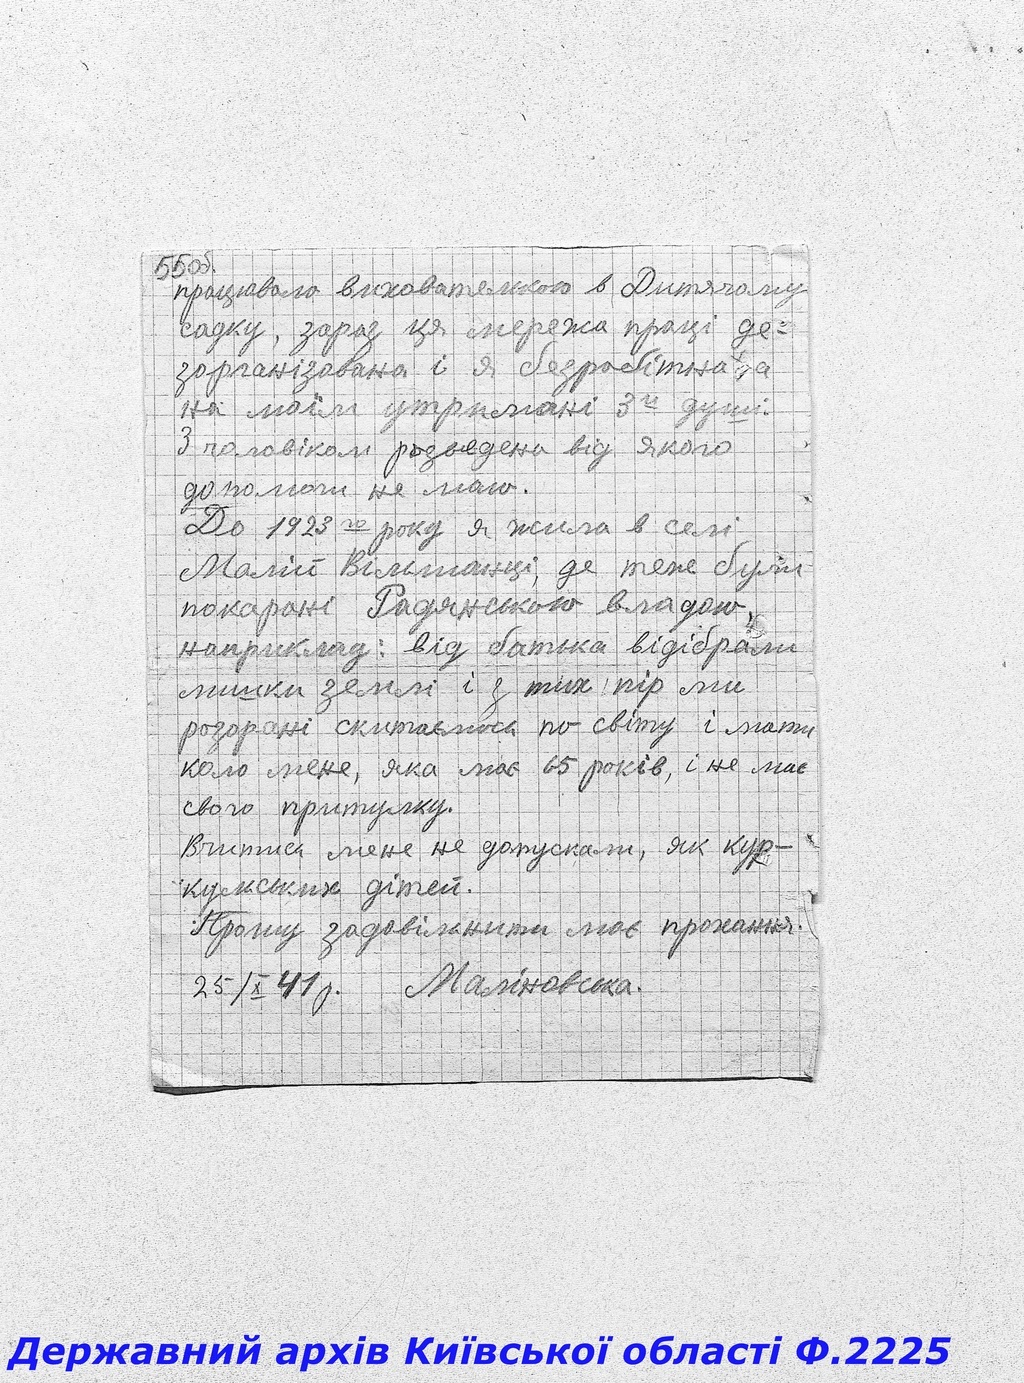 55об.
працювала вихователькою в Дитячому
садку, зараз ця мережа праці де=
зорганізована і я безробітна, а
на моїм утримані 3и душі.
З чоловіком розведена від якого
допомоги не маю.
До 1923го року я жила в селі
Малій Вільшанці, де теж були
покарані Радянською владою,
наприклад: від батька відібрали
лишки землі і з тих пір ми
розорані скитаємось по світу і мати
коло мене, яка має 65 років, і не має
свого притулку.
Вчитись мене не допускали, як кур-
кульських дітей.
Прошу задовільнити моє прохання.
25/X 41 р. Маліновська.
Державний архів Київської області Ф.2225